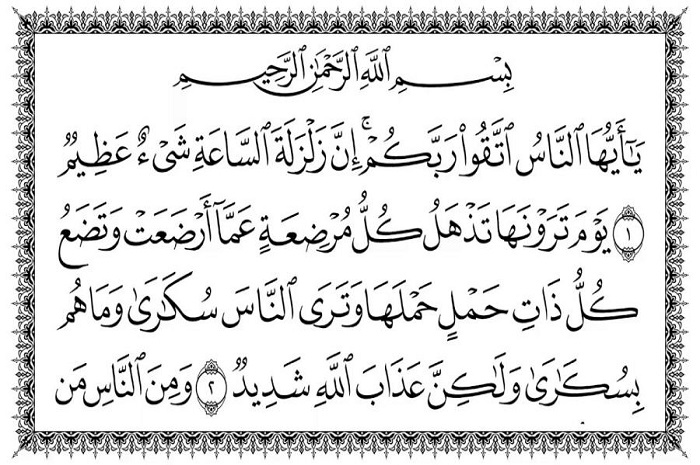 بِسْمِ ٱللَّهِ ٱلرَّحْمَٰنِ ٱلرَّحِيمِ
يَٰٓأَيُّهَا ٱلنَّاسُ ٱتَّقُوا۟ رَبَّكُمْ ۚ إِنَّ زَلْزَلَةَ ٱلسَّاعَةِ شَىْءٌ عَظِيمٌ
١ يَوْمَ تَرَوْنَهَا تَذْهَلُ كُلُّ مُرْضِعَةٍ عَمَّآ أَرْضَعَتْ وَتَضَعُ
كُلُّ ذَاتِ حَمْلٍ حَمْلَهَا وَتَرَى ٱلنَّاسَ سُكَٰرَىٰ وَمَا هُم
بِسُكَٰرَىٰ وَلَٰكِنَّ عَذَابَ ٱللَّهِ شَدِيدٌ ٢ وَمِنَ ٱلنَّاسِ مَن